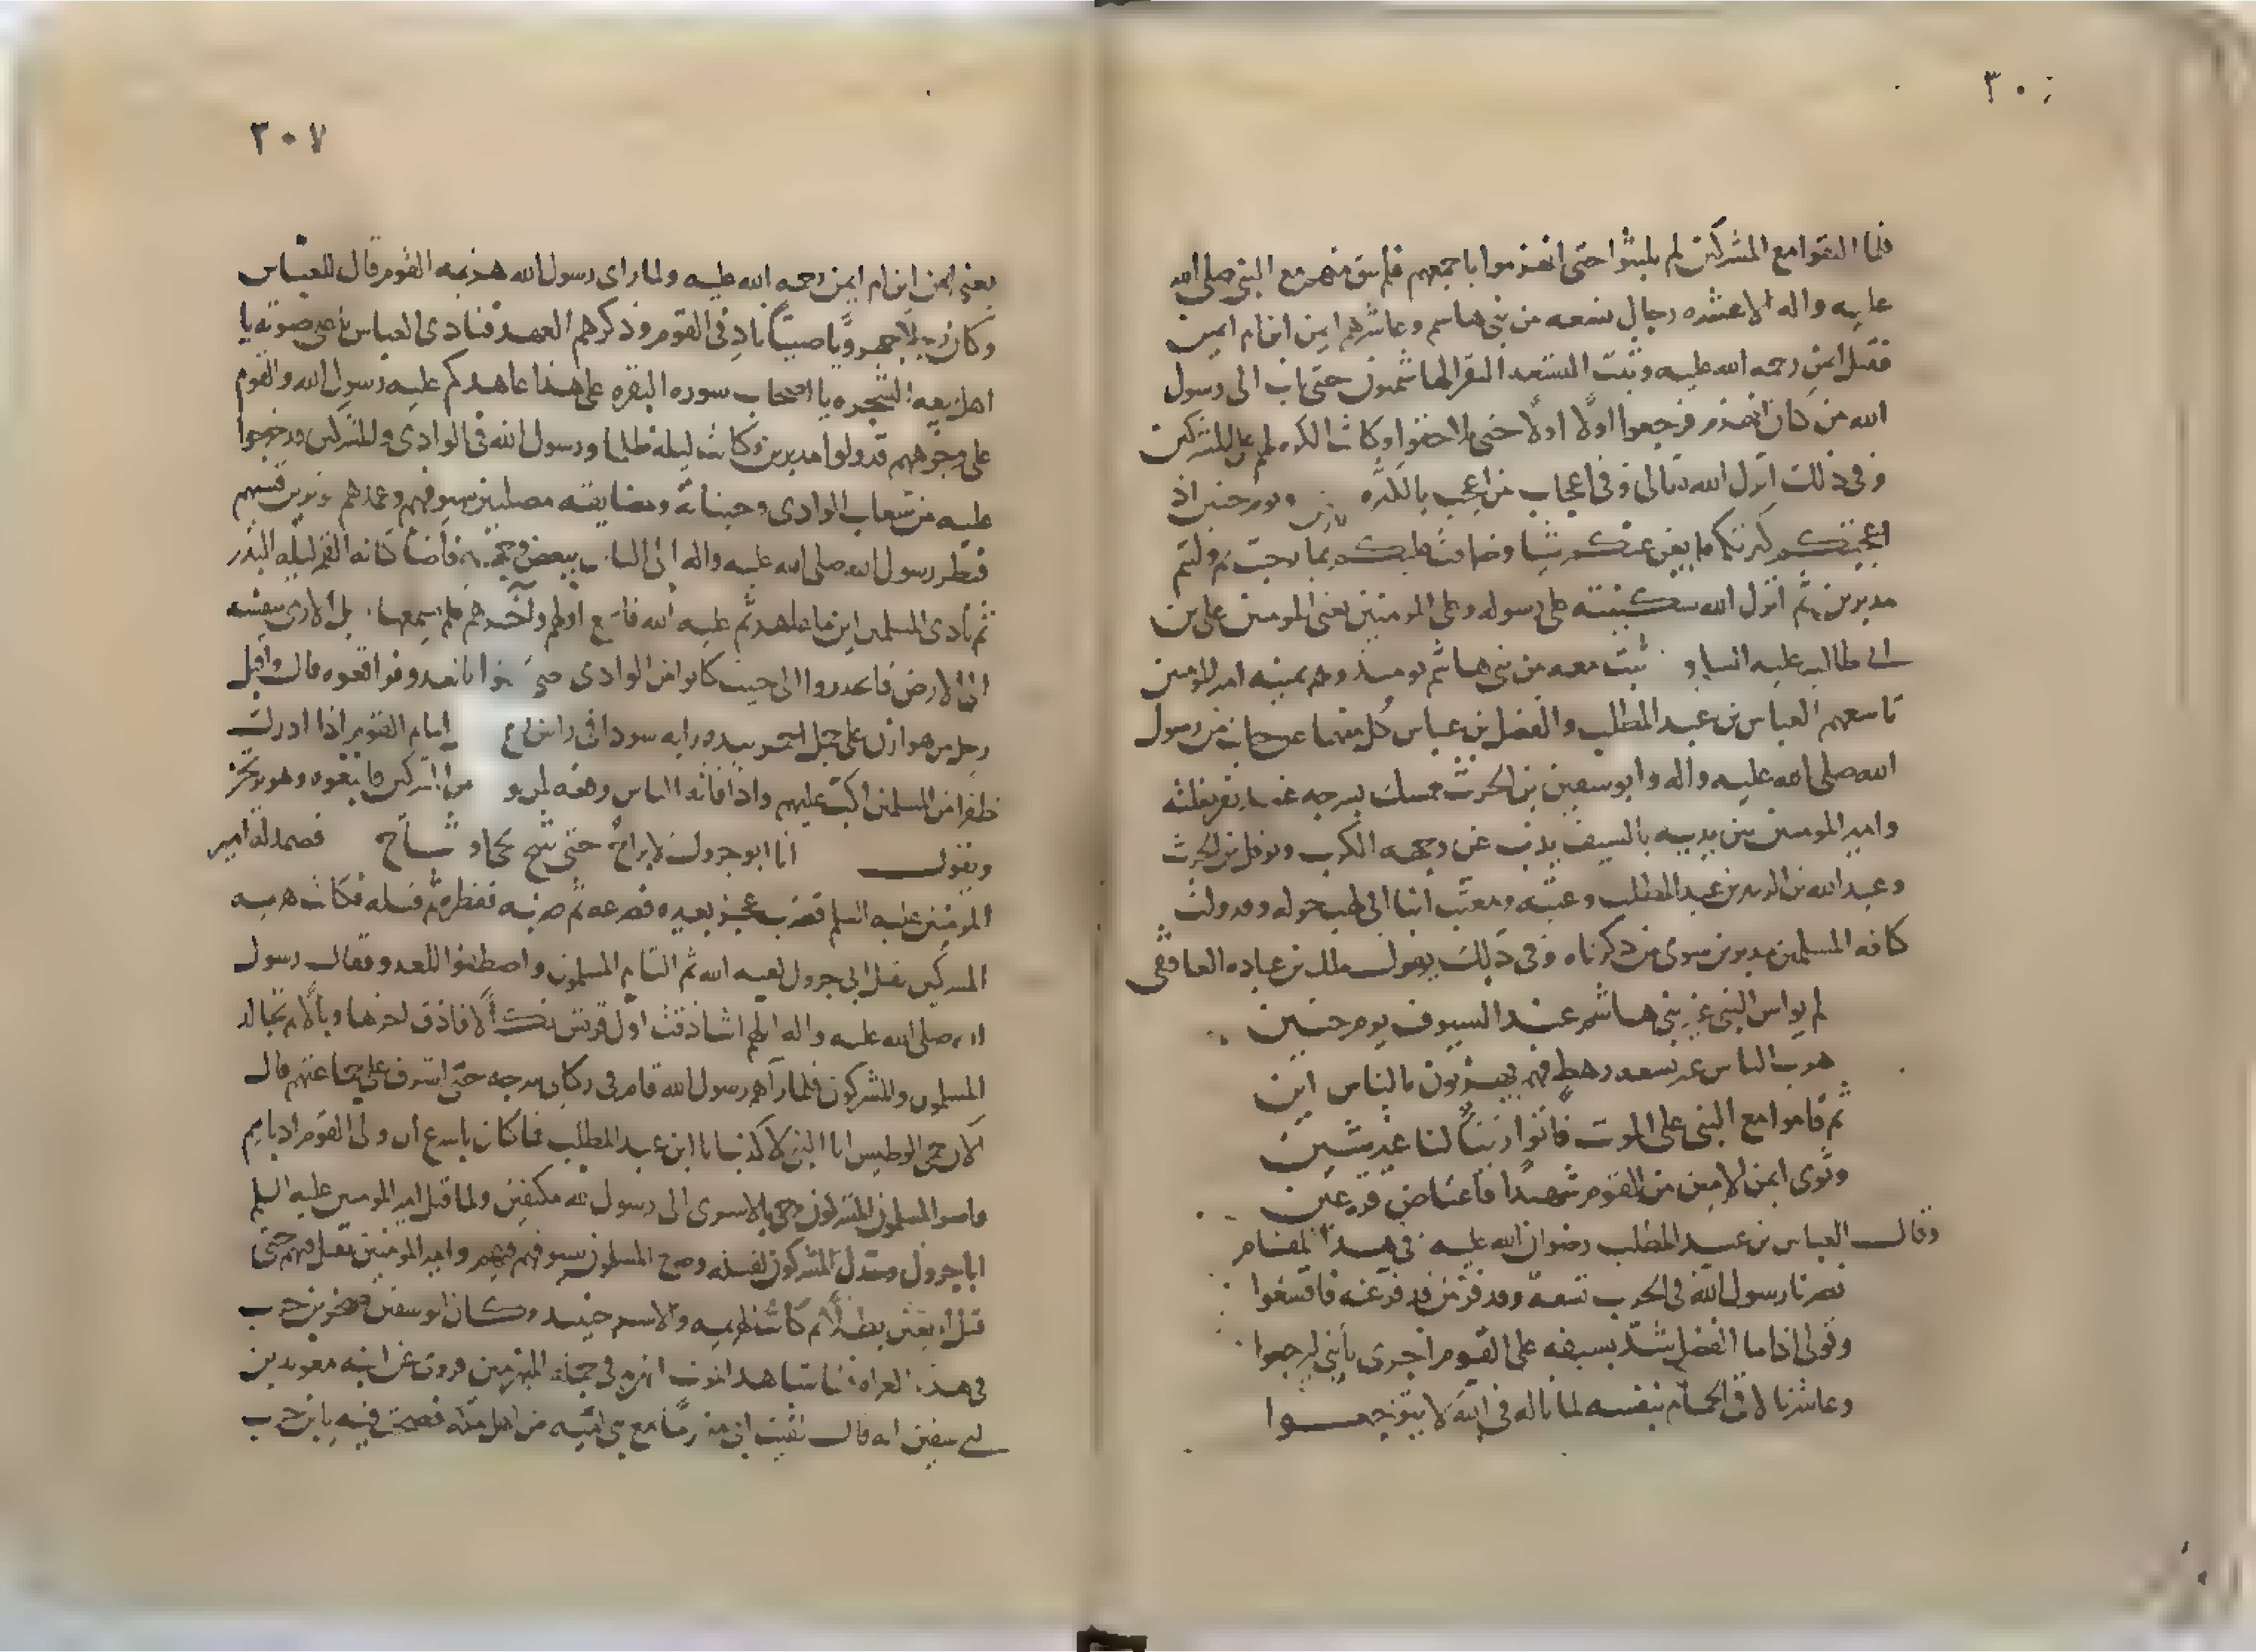 ٣٠
فلما التقوا مع المشركين لم يلبثوا حتى انهزموا باجمعهم فلم يبق منهم مع النبي صلى الله
عليه واله الا عشره رجال تسعه من بني هاشم وعاشرهم ايمن ابن ام ايمن
فقتل ايمن رحمه الله عليه وثبت التسعه النفر الهاشميون حتى ثاب الى رسول
الله من كان انهزم فرجعوا اولا اولا حتى تلاحقوا وكانت الكره لهم على المشركين
وفي ذلك انزل الله تعالى وفي اعجاب من اعجب بالكثره ويوم حنين اذ
اعجبتكم كثرتكم فلم يغن عنكم شيا وضاقت عليكم بما رحبت ثم وليتم
مدبرين ثم انزل الله سكينته على رسوله وعلى المومنين يعني المومنين علي بن
ابي طالب عليه السلم و ثبت معه من بني هاشم يومئذ وهم ثمنيه امير المومنين
تاسعهم العباس بن عبد المطلب والفضل بن عباس كل منهما عن جانب من رسول
الله صلى الله عليه واله وابو سفين بن الحرث ممسك بسرجه عند نفر بغلته
وامير المومنين بين يديه بالسيف يذب عن وجهه الكرب ونوفل بن الحرث
وعبد الله بن الزبير بن عبد المطلب وعتبه ومعتب ابنا ابي لهب حوله وقد ولت
كافه المسلمين مدبرين سوى من ذكرناه وفي ذلك يقول ملك بن عباده الغافقي
لم يواس النبي غير بني هاشم عند السيوف يوم حنين
هرب الناس غير تسعه رهط فهم يهتفون بالناس اين
ثم قاموا مع النبي على الموت فاتوا زينا لنا غير شين
وثوى ايمن الامين من القوم شهيدا فاعتاض قره عين
وقال العباس بن عبد المطلب رضوان الله عليه في هذا المقام
نصرنا رسول الله في الحرب تسعة وقد فر من قد فر عنه فاقشعوا
وقولي اذا ما الفضل شد بسيفه على القوم اخرى يا بني ليرجعوا
وعاشرنا لاقى الحمام بنفسه لما ناله في الله لا يتوجعوا
٣٠٧
يعني ايمن ابن ام ايمن رحمه الله عليه ولما راى رسول الله هزيمه القوم قال للعباس
وكان رجلا جهوريا صيتا ناد في القوم وذكرهم العهد فنادى العباس باعلى صوته يا
اهل بيعه الشجره يا اصحاب سوره البقره على هذا عاهدكم عليه رسول الله والقوم
على وجوههم قد ولوا مدبرين وكانت ليله ظلما ورسول الله في الوادي والمشركين قد خرجوا
عليه من شعاب الوادي وجنباته ومضايقه مصلتين بسيوفهم وعمدهم وقسيهم
فنظر رسول الله صلى الله عليه واله الى الناس ببعض وجهه فاضا كانه القمر ليله البدر
ثم نادى المسلمين اين ما عاهدتم عليه الله فاسمع اولهم واخرهم فلم يسمعها رجل الا رمى بنفسه
الى الارض فانحدروا الى حيث كانوا من الوادي حتى بالعدو فواقعوه قال واقبل
رجل من هوازن على جمل احمر بيده رايه سودا في راس امام القوم اذا ادرك
ظفرا من المسلمين اكب عليهم واذا فاته الناس رفعه لمن و من المشركين فاتبعوه وهو يرتجز
ويقول انا ابو جرول لا براح حتى نبيح القوم او نباح فصمد له امير
المومنين عليه السلم فضرب عجز بعيره فصرعه ثم ضربه فقطره ثم قتله فكانت هزيمه
المشركين بقتل ابي جرول لعنه الله ثم التام المسلمون واصطفوا للعدو فقال رسول
الله صلى الله عليه واله اللهم انك اذقت اول قريش نكالا فاذق اخرها وبالا ثم تجالد
المسلمون والمشركون فلما رآهم رسول الله قام في ركاب سرجه حتى اشرف على جماعتهم قال
الان حمي الوطيس انا النبي لا كذب انا ابن عبد المطلب فما كان باسرع ان ولى القوم ادبارهم
واسر المسلمون المشركون وجي بالاسرى الى رسول الله مكتفين ولما قتل امير المومنين عليه السلم
ابا جرول وخذل المشركون لقتله وضع المسلمون سيوفهم فيهم وامير المومنين يقدمهم حتى
قتل اربعين رجلا ثم كانت الهزيمه والاسر حينئذ وكان ابو سفين صخر بن حرب
في هذه الغزاه فانهزم في جمله المنهزمين فروي عن ابنه معويه بن
ابي سفين انه قال لقيت ابي منهزما مع بني اميه من اهل مكه فصحت فيه يا ابن حرب